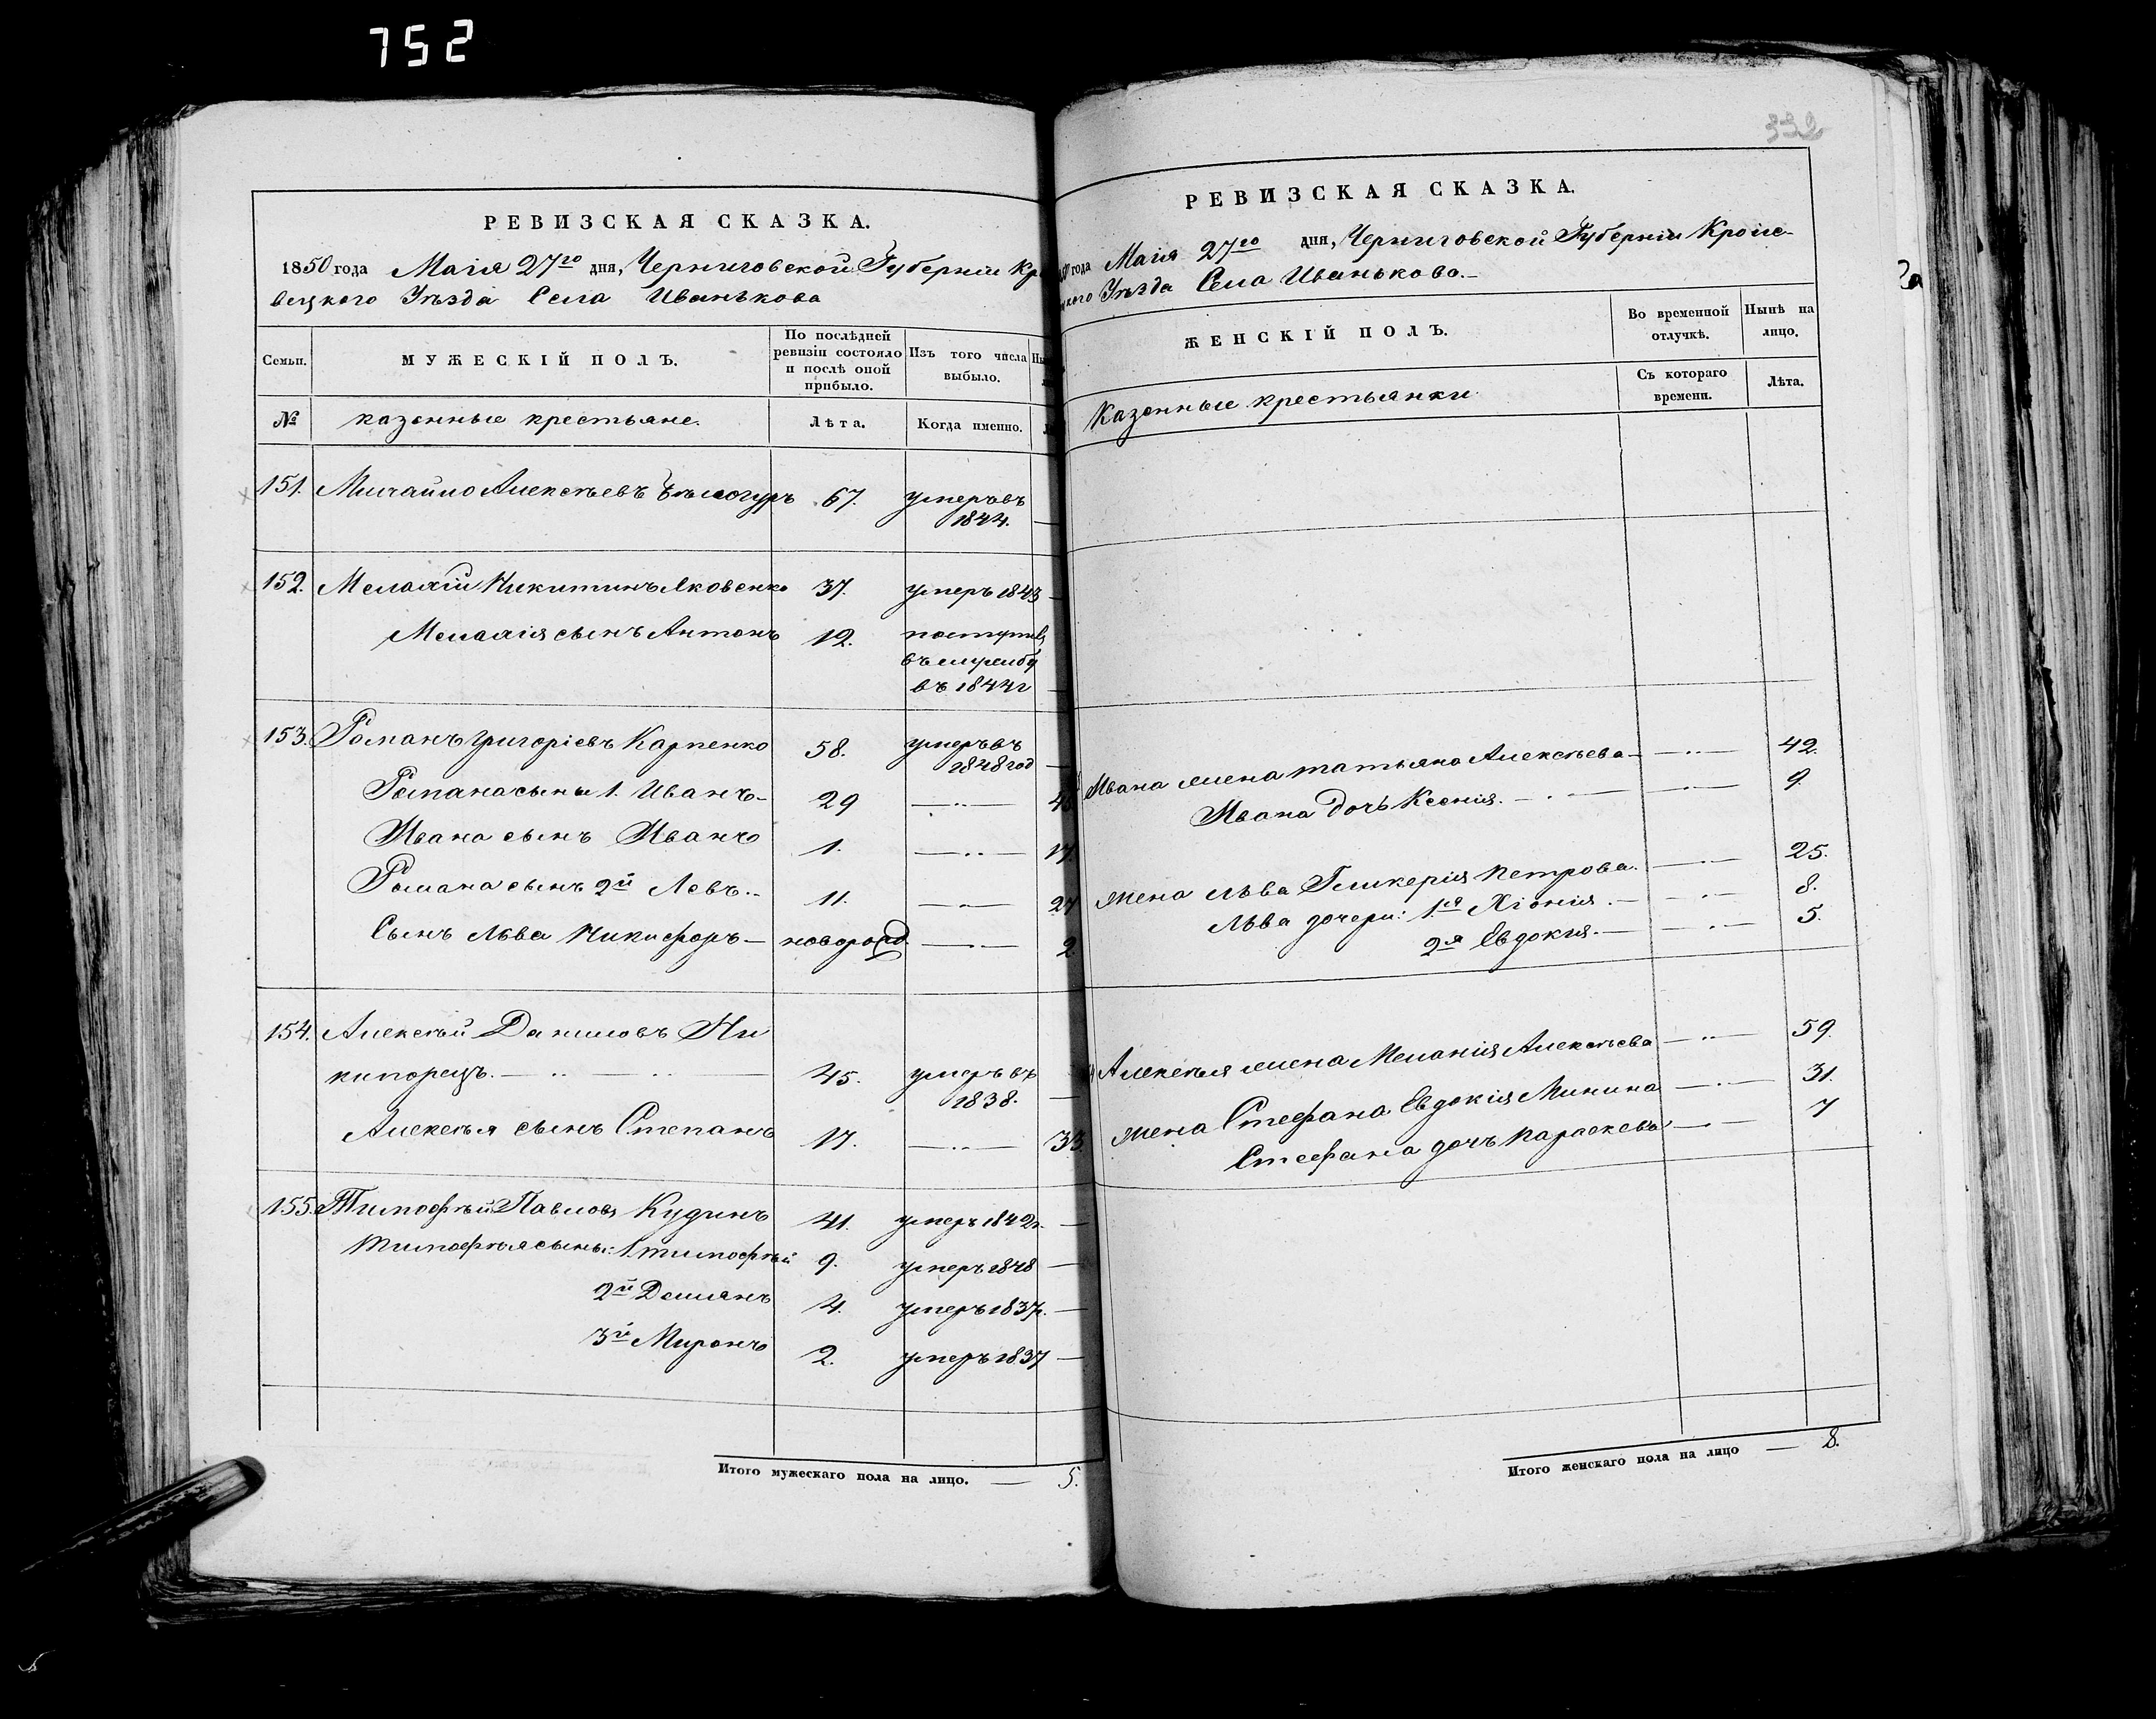 752
РЕВИЗСКАЯ СКАЗКА.
1850 года Маія 27го дня, Черниговской Губерніи Кр
вецкого Уѣзда Села Иванькова
Семьи.
МУЖЕСКІЙ ПОЛЪ.
По послѣдней ревизіи состояло и послѣ оной прибыло.
Изъ того числа выбыло.
№
казенные крестьяне.
Лѣта.
Когда именно.
151. Михайло Алексѣевъ 67. умеръ въ
1844. —
152. Мелахій Никитинъ Яковенко 37. умеръ 1843 —
Мелахія сынъ Антонъ 12.
въ 1844г —
153. Романъ Григоріевъ Карпенко 58. умеръ въ
1848 год —
Романа сыны 1. Иванъ- 29 — 45
Ивана сынъ Иванъ 1. — 17.
Романа сынъ 2й Левъ.- 11. — 27
Сынъ Льва Никифоръ — новорожд — 2.
154. Алексѣй Даниловъ Ни
кипорецъ. — 45. умеръ въ
1838. —
Алексѣя сынъ Степанъ 17. — 33.
155. Тимофѣй Павловъ Кудинъ 41. умеръ 1842г. —
Тимофѣя сыны: 1. Тимофѣй 9. умеръ 1848 —
2й Демьянъ 4. умеръ 1837г. —
3й Миронъ 2. умеръ 1837 —
Итого мужескаго пола на лицо. — 5.
332
РЕВИЗСКАЯ СКАЗКА.
года Маія 27го дня, Черниговской Губерніи Кроле-
цкого Уѣзда Села Иванькова.-
ЖЕНСКІЙ ПОЛЪ.
Во временной отлучкѣ.
Нынѣ на лицо.
Казенные крестьянки
Съ котораго времени.
Лѣта.
Ивана жена Татьяна Алексѣева — 42.
Ивана дочь Ксенія. — 9.
Жена Льва Гликерія Петрова. — 25.
Льва дочери: 1я Хіонія. — 8.
2я Евдокія. — 5.
Алексѣя жена Меланія Алексѣева — 59.
Жена Стефана Евдокія Минина — 31.
Стефана дочь Параскевa — 7
Итого женскаго пола на лицо — 8.